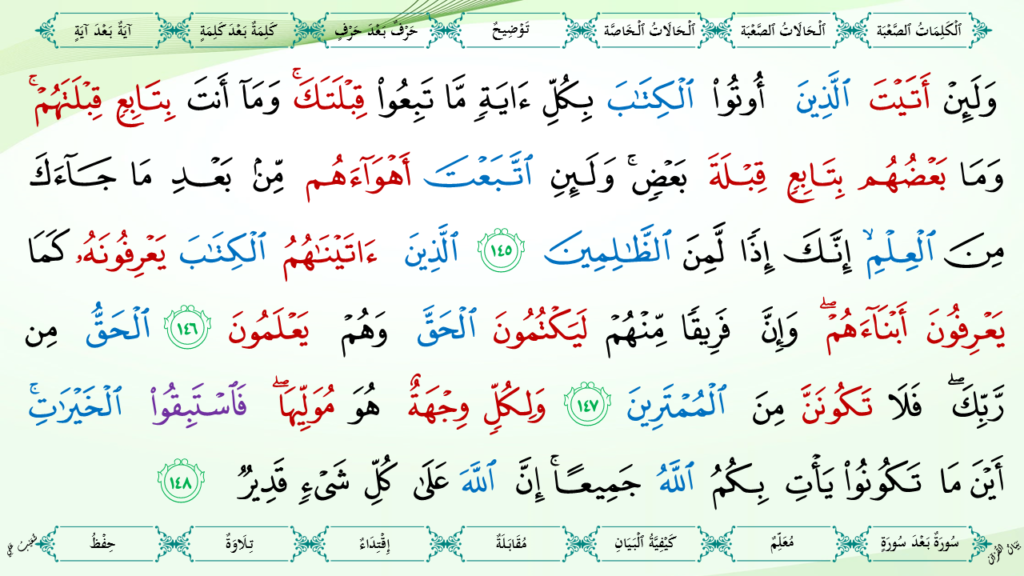 اَلْكَلِمَاتُ الصَّعْبَة اَلْحَالَاتُ الصَّعْبَة اَلْحَالَاتُ الْخَاصَّة تَوْضِيحٌ حَرْفٌ بَعْدَ حَرْفٍ كَلِمَةٌ بَعْدَ كَلِمَةٍ آيَةٌ بَعْدَ آيَةٍ
وَلَئِنْ أَتَيْتَ ٱلَّذِينَ أُوتُوا۟ ٱلْكِتَـٰبَ بِكُلِّ ءَايَةٍ مَّا تَبِعُوا۟ قِبْلَتَكَ ۚ وَمَآ أَنتَ بِتَابِعٍ قِبْلَتَهُمْ ۚ
وَمَا بَعْضُهُم بِتَابِعٍ قِبْلَةَ بَعْضٍ ۚ وَلَئِنِ ٱتَّبَعْتَ أَهْوَآءَهُم مِّنۢ بَعْدِ مَا جَآءَكَ
مِنَ ٱلْعِلْمِ ۙ إِنَّكَ إِذًا لَّمِنَ ٱلظَّـٰلِمِينَ ١٤٥ ٱلَّذِينَ ءَاتَيْنَـٰهُمُ ٱلْكِتَـٰبَ يَعْرِفُونَهُۥ كَمَا
يَعْرِفُونَ أَبْنَآءَهُمْ ۖ وَإِنَّ فَرِيقًا مِّنْهُمْ لَيَكْتُمُونَ ٱلْحَقَّ وَهُمْ يَعْلَمُونَ ١٤٦ ٱلْحَقُّ مِن
رَّبِّكَ ۖ فَلَا تَكُونَنَّ مِنَ ٱلْمُمْتَرِينَ ١٤٧ وَلِكُلٍّ وِجْهَةٌ هُوَ مُوَلِّيهَا ۖ فَٱسْتَبِقُوا۟ ٱلْخَيْرَٰتِ ۚ
أَيْنَ مَا تَكُونُوا۟ يَأْتِ بِكُمُ ٱللَّهُ جَمِيعًا ۚ إِنَّ ٱللَّهَ عَلَىٰ كُلِّ شَىْءٍ قَدِيرٌ ١٤٨
سُورَةٌ بَعْدَ سُورَةٍ مُعَلِّمٌ كَيْفِيَّةُ الْبَيَانِ مُقَابَلَةٌ إِقْتِدَاءٌ تِلَاوَةٌ حِفْظٌ